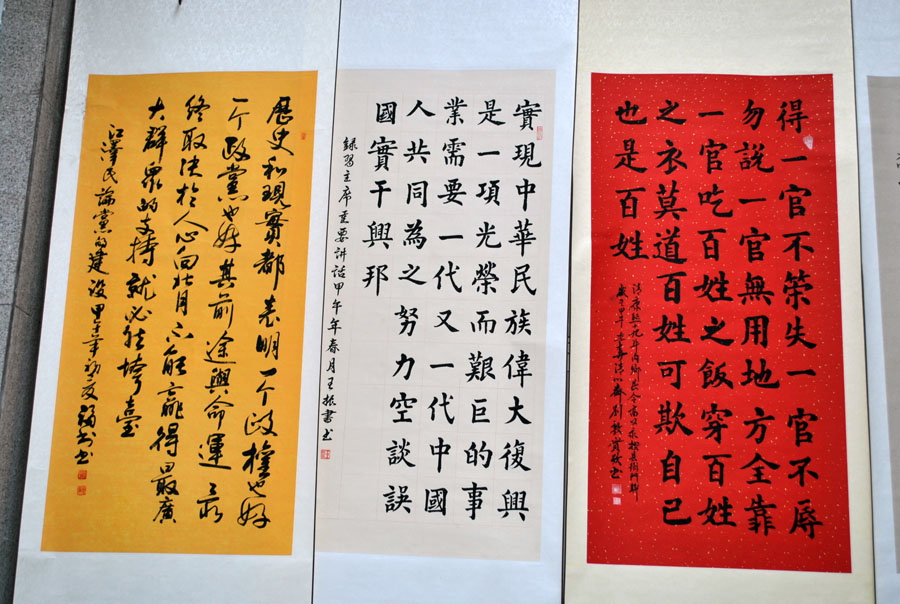 得一官不榮失一官不辱
勿說一官無用地方全靠
一官吃百姓之飯穿百姓
之衣莫道百姓可欺自己
也是百姓
清康熙十九年內鄉縣令高以永撰其衙門聯
歲次甲午
實現中華民族偉大復興
是一項光榮而艱巨的事
業需要一代又一代中國
人共同為之努力空談誤
國實干興邦
錄習主席重要講話甲午年春月王振書
歷史和現實都表明一个政權也好
一个政黨也好其前途與命運最
終取决於人心向背不能贏得最廣
大群眾的支持就必然垮臺
江澤民論黨的建設甲午年初夏福书